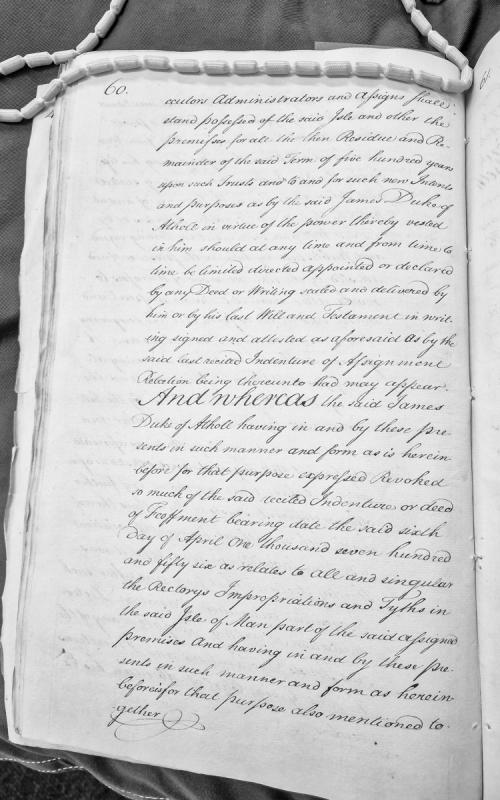 60.
ecutors Administrators and Assigns shall
stand possessed of the said Isle and other the
premisses for all the then Residue and Re-
mainder of the said Term of five hundred years
upon such Trusts and to and for such new Intents
and purposes as by the said James Duke of
Atholl in virtue of the power thereby vested
in him should at any time and from time to
time be limited directed appointed or declared
by any Deed or Writing sealed and delivered by
him or by his Last Will and Testament in writ-
ing signed and attested as aforesaid As by the
said last recited Indenture of Assignment
Relation being thereunto had may appear.
And whereas the said James
Duke of Atholl having in and by these pre-
sents in such manner and form as is herein
before for that purpose expressed Revoked
so much of the said recited Indenture or deed
of Feoffment bearing date the said sixth
day of April One thousand seven hundred
and fifty six as relates to all and singular
the Rectorys Impropriations and Tyths in
the said Isle of Man part of the said assigned
premises And having in and by these pre-
sents in such manner and form as herein
before is for that purpose also mentioned to-
gether